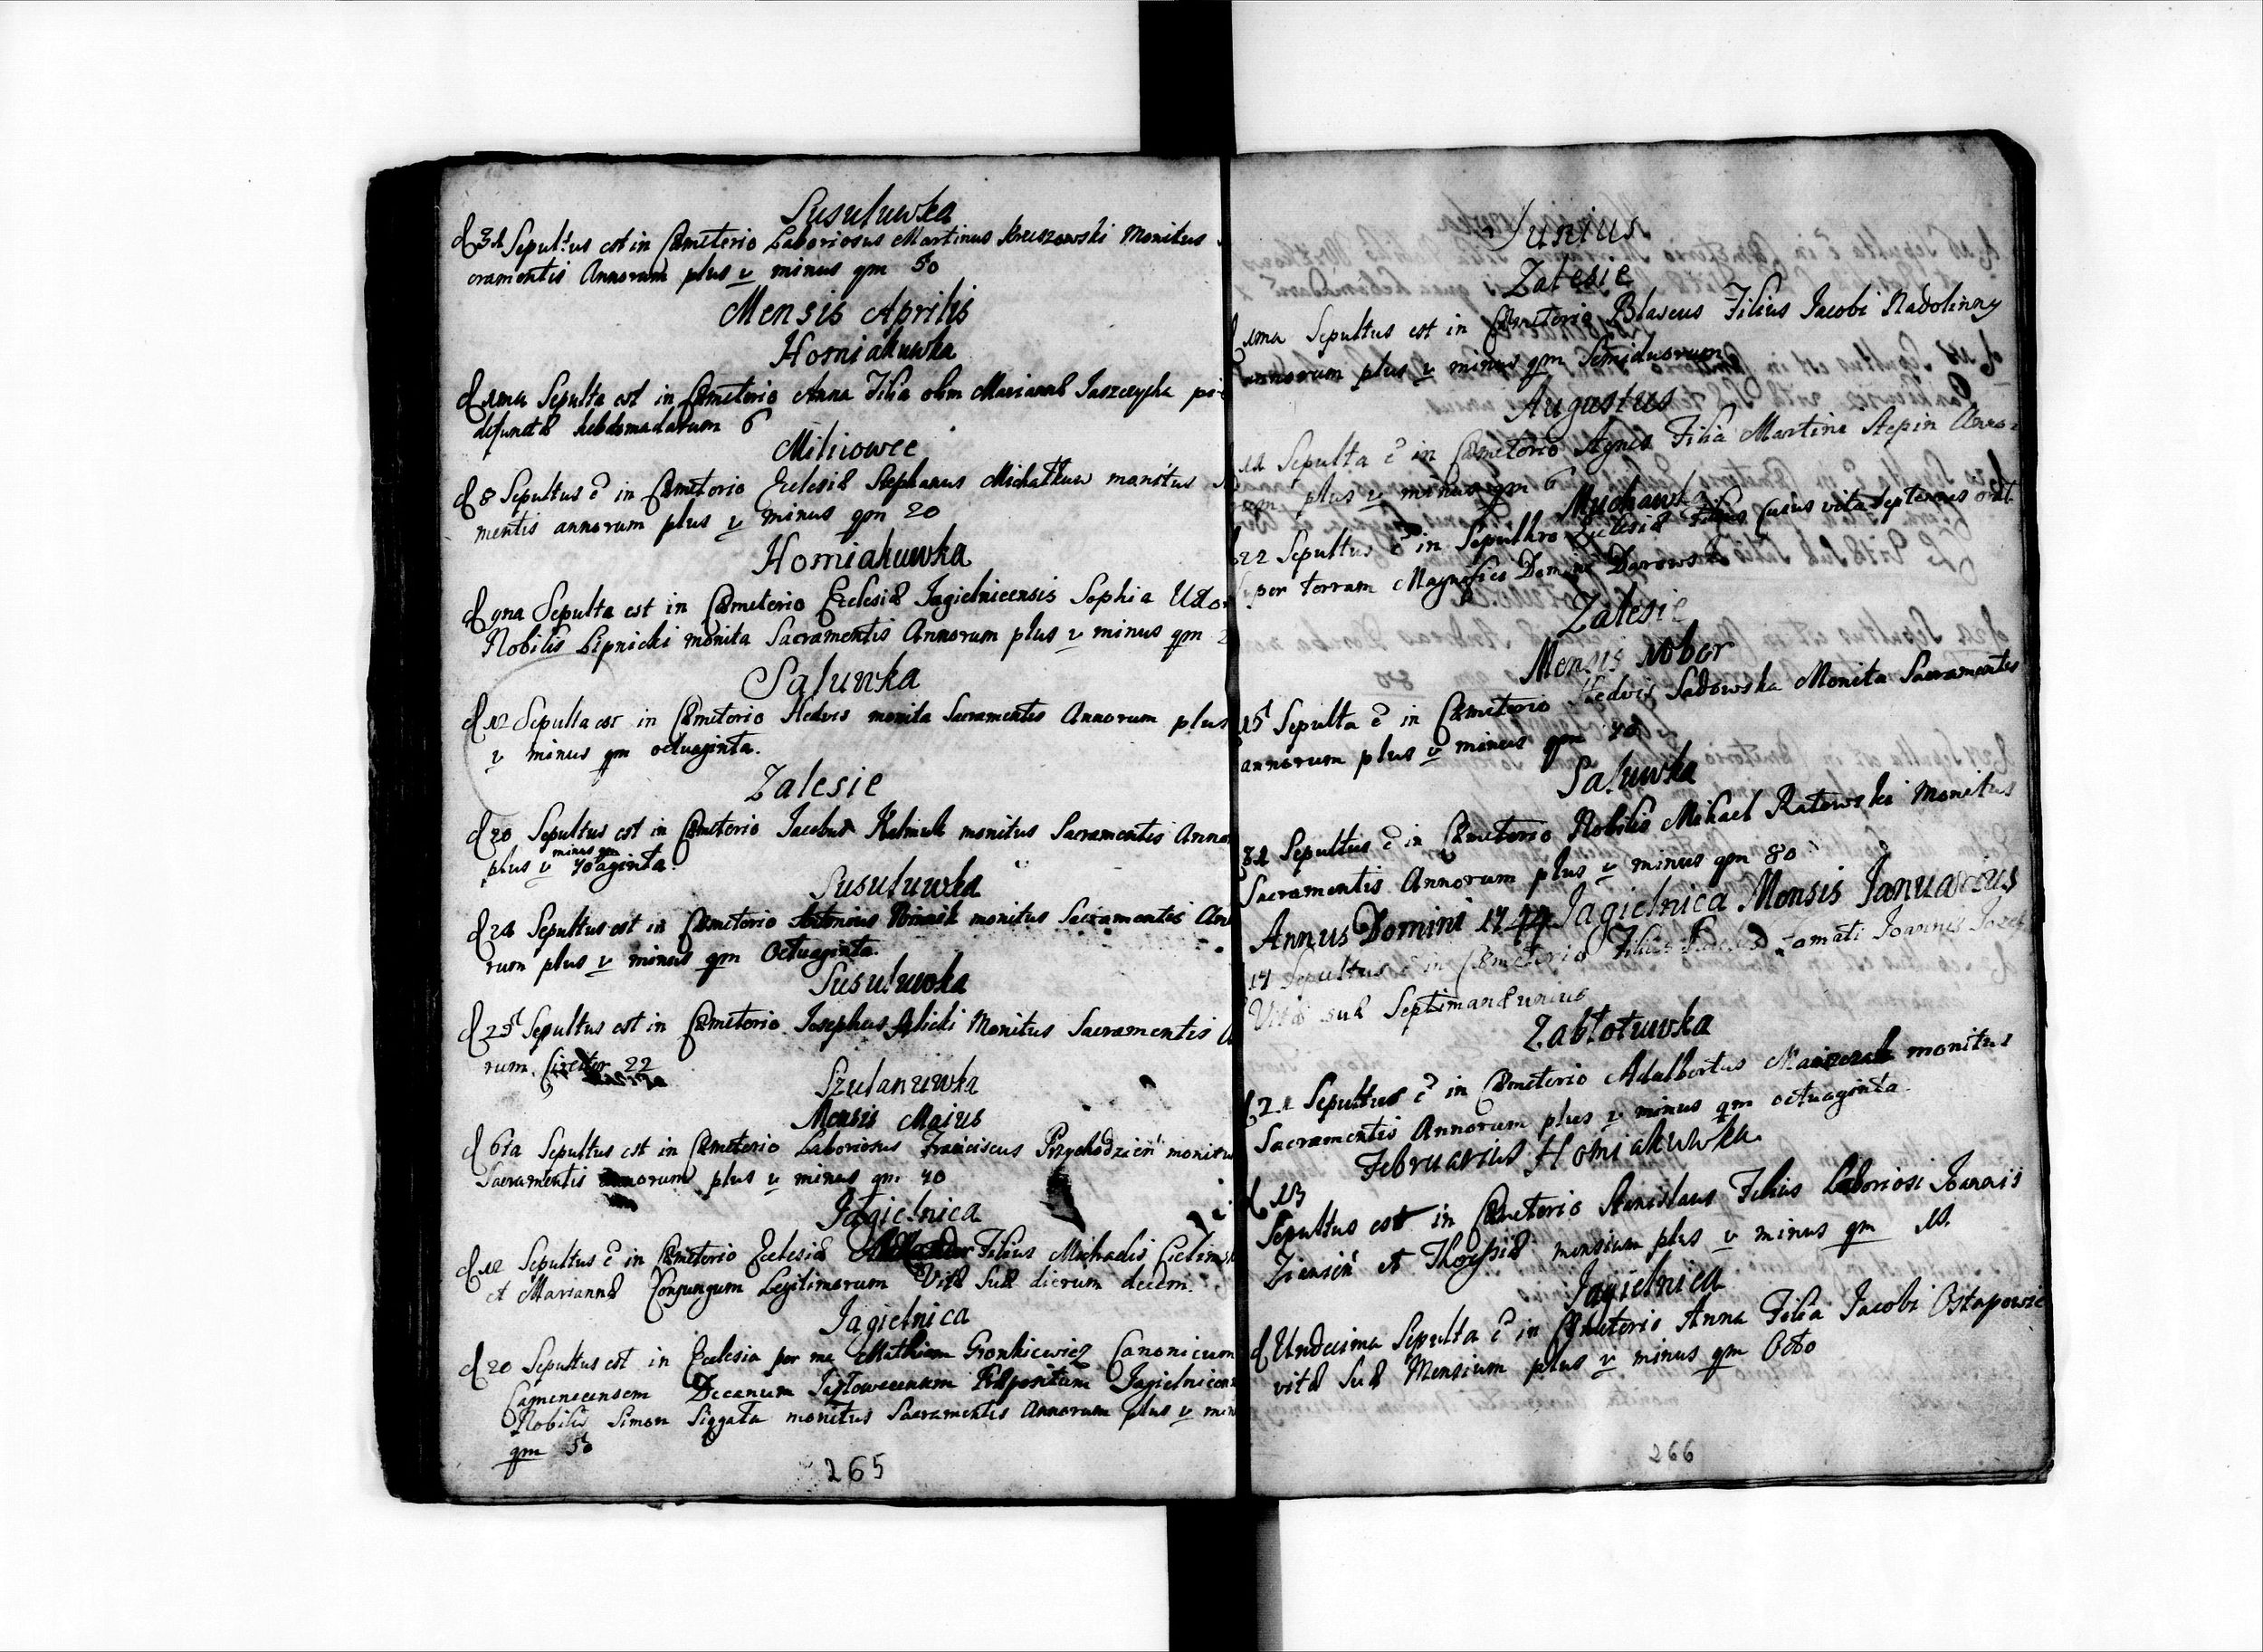 Susuluwka
d 31 Sepultus est in Cæmeterio Laboriosus Martinus Kruszowski Monitus
cramentis Annorum plus v minus qm 50
Mensis Aprilis
Homiakuwka
d 1ma Sepulta est in Cæmeterio Anna Filia olim Mariannæ Jaszczycha
defunctæ hebdomadarum 6
Miliowce
d 8 Sepultus ē in Cæmeterio Ecclesiæ Stephanus Michałkuw monitus
mentis annorum plus v minus qm 20
Homiakuwka
d 9na Sepulta est in Cæmeterio Ecclesiæ Jagielnicensis Sophia Uxor
Nobilis Lipnicki monita Sacramentis Annorum plus v minus qm
Saluwka
d 12 Sepulta est in Cæmeterio Hedvis monita Sacramentis Annorum plus
v minus qm octuaginta.
Zalesie
d 20 Sepultus est in Cæmeterio Jacobus Kalmuk monitus Sacramentis Anno
plus v minus qm 70aginta.
Susuluwka
d 24 Sepultus est in Cæmeterio Antonius monitus Sacramentis An
rum plus v minus qm Octuaginta.
Susuluwka
d 25 Sepultus est in Cæmeterio Josephus Monitus Sacramentis
rum Circiter 22
Szulanuwka
Mensis Maius
d 6ta Sepultus est in Cæmeterio Laboriosus Franciscus Przychodzień monitus
Sacramentis annorum plus v minus qm 70
Jagielnica
d 12 Sepultus ē in Cæmeterio Ecclesiæ Filius Michaelis
et Mariannæ Conjungum Legitimorum Vitæ Suæ dierum decem.
Jagielnica
d 20 Sepultus est in Ecclesia per me Mathiam Gronkiewicz Canonicum
Camenecensem Decanum Jazłowecensem Præpositum Jagielnicen
Nobilis Simon Siggata monitus Sacramentis Annorum plus v min
qm 50
265
Junius
Zalesie
1ma Sepultus est in Cæmeterio Blaseus Filius Jacobi Nadolinny
annorum plus v minus qm Semiduorum
Augustus
11 Sepulta ē in Cæmeterio Agnes Filia Martini Stepin Anno
rum plus v minus qm 6
Muchawka
22 Sepultus ē in Sepulchro Ecclesiæ Filius Cuius vita septennis
super terram Magnifici Domini Darowski
Zalesie
Mensis Xbber
15 Sepulta ē in Cæmeterio Hedvis Sadowska Monita Sacramentis
annorum plus v minus qm 70
Saluwka
31 Sepultus ē in Cæmeterio Nobilis Mihael Ratowski Monitus
Sacramentis Annorum plus v minus qm 80
Annus Domini 1744 Jagielnica Mensis Januarius
17 Sepultus ē in Cæmeterio Filius Joannis
Vitæ suæ Septimanæ unius
Zabłotuwka
d 21 Sepultus ē in Cæmeterio Adalbertus monitus
Sacramentis Annorum plus v minus qm octuaginta.
Februarius Homiakuwka
d 13
Sepultus est in Cæmeterio Stanislaus Filius Laboriosi Joannis
et mensium plus v minus qm
Jagielnica
d Undecima Sepulta ē in Cæmeterio Anna Filia Jacobi Ostapowic
vitæ Suæ Mensium plus v minus qm Octo
266